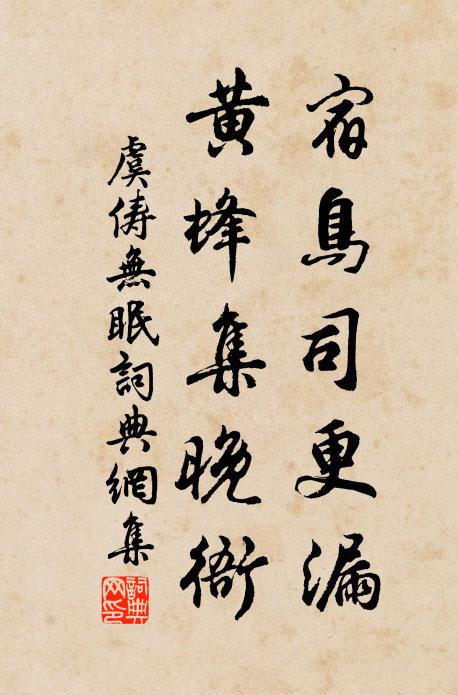 宿鳥司更漏
黃蜂集晚衙
虞俦無眠詞典網集
詞典網印